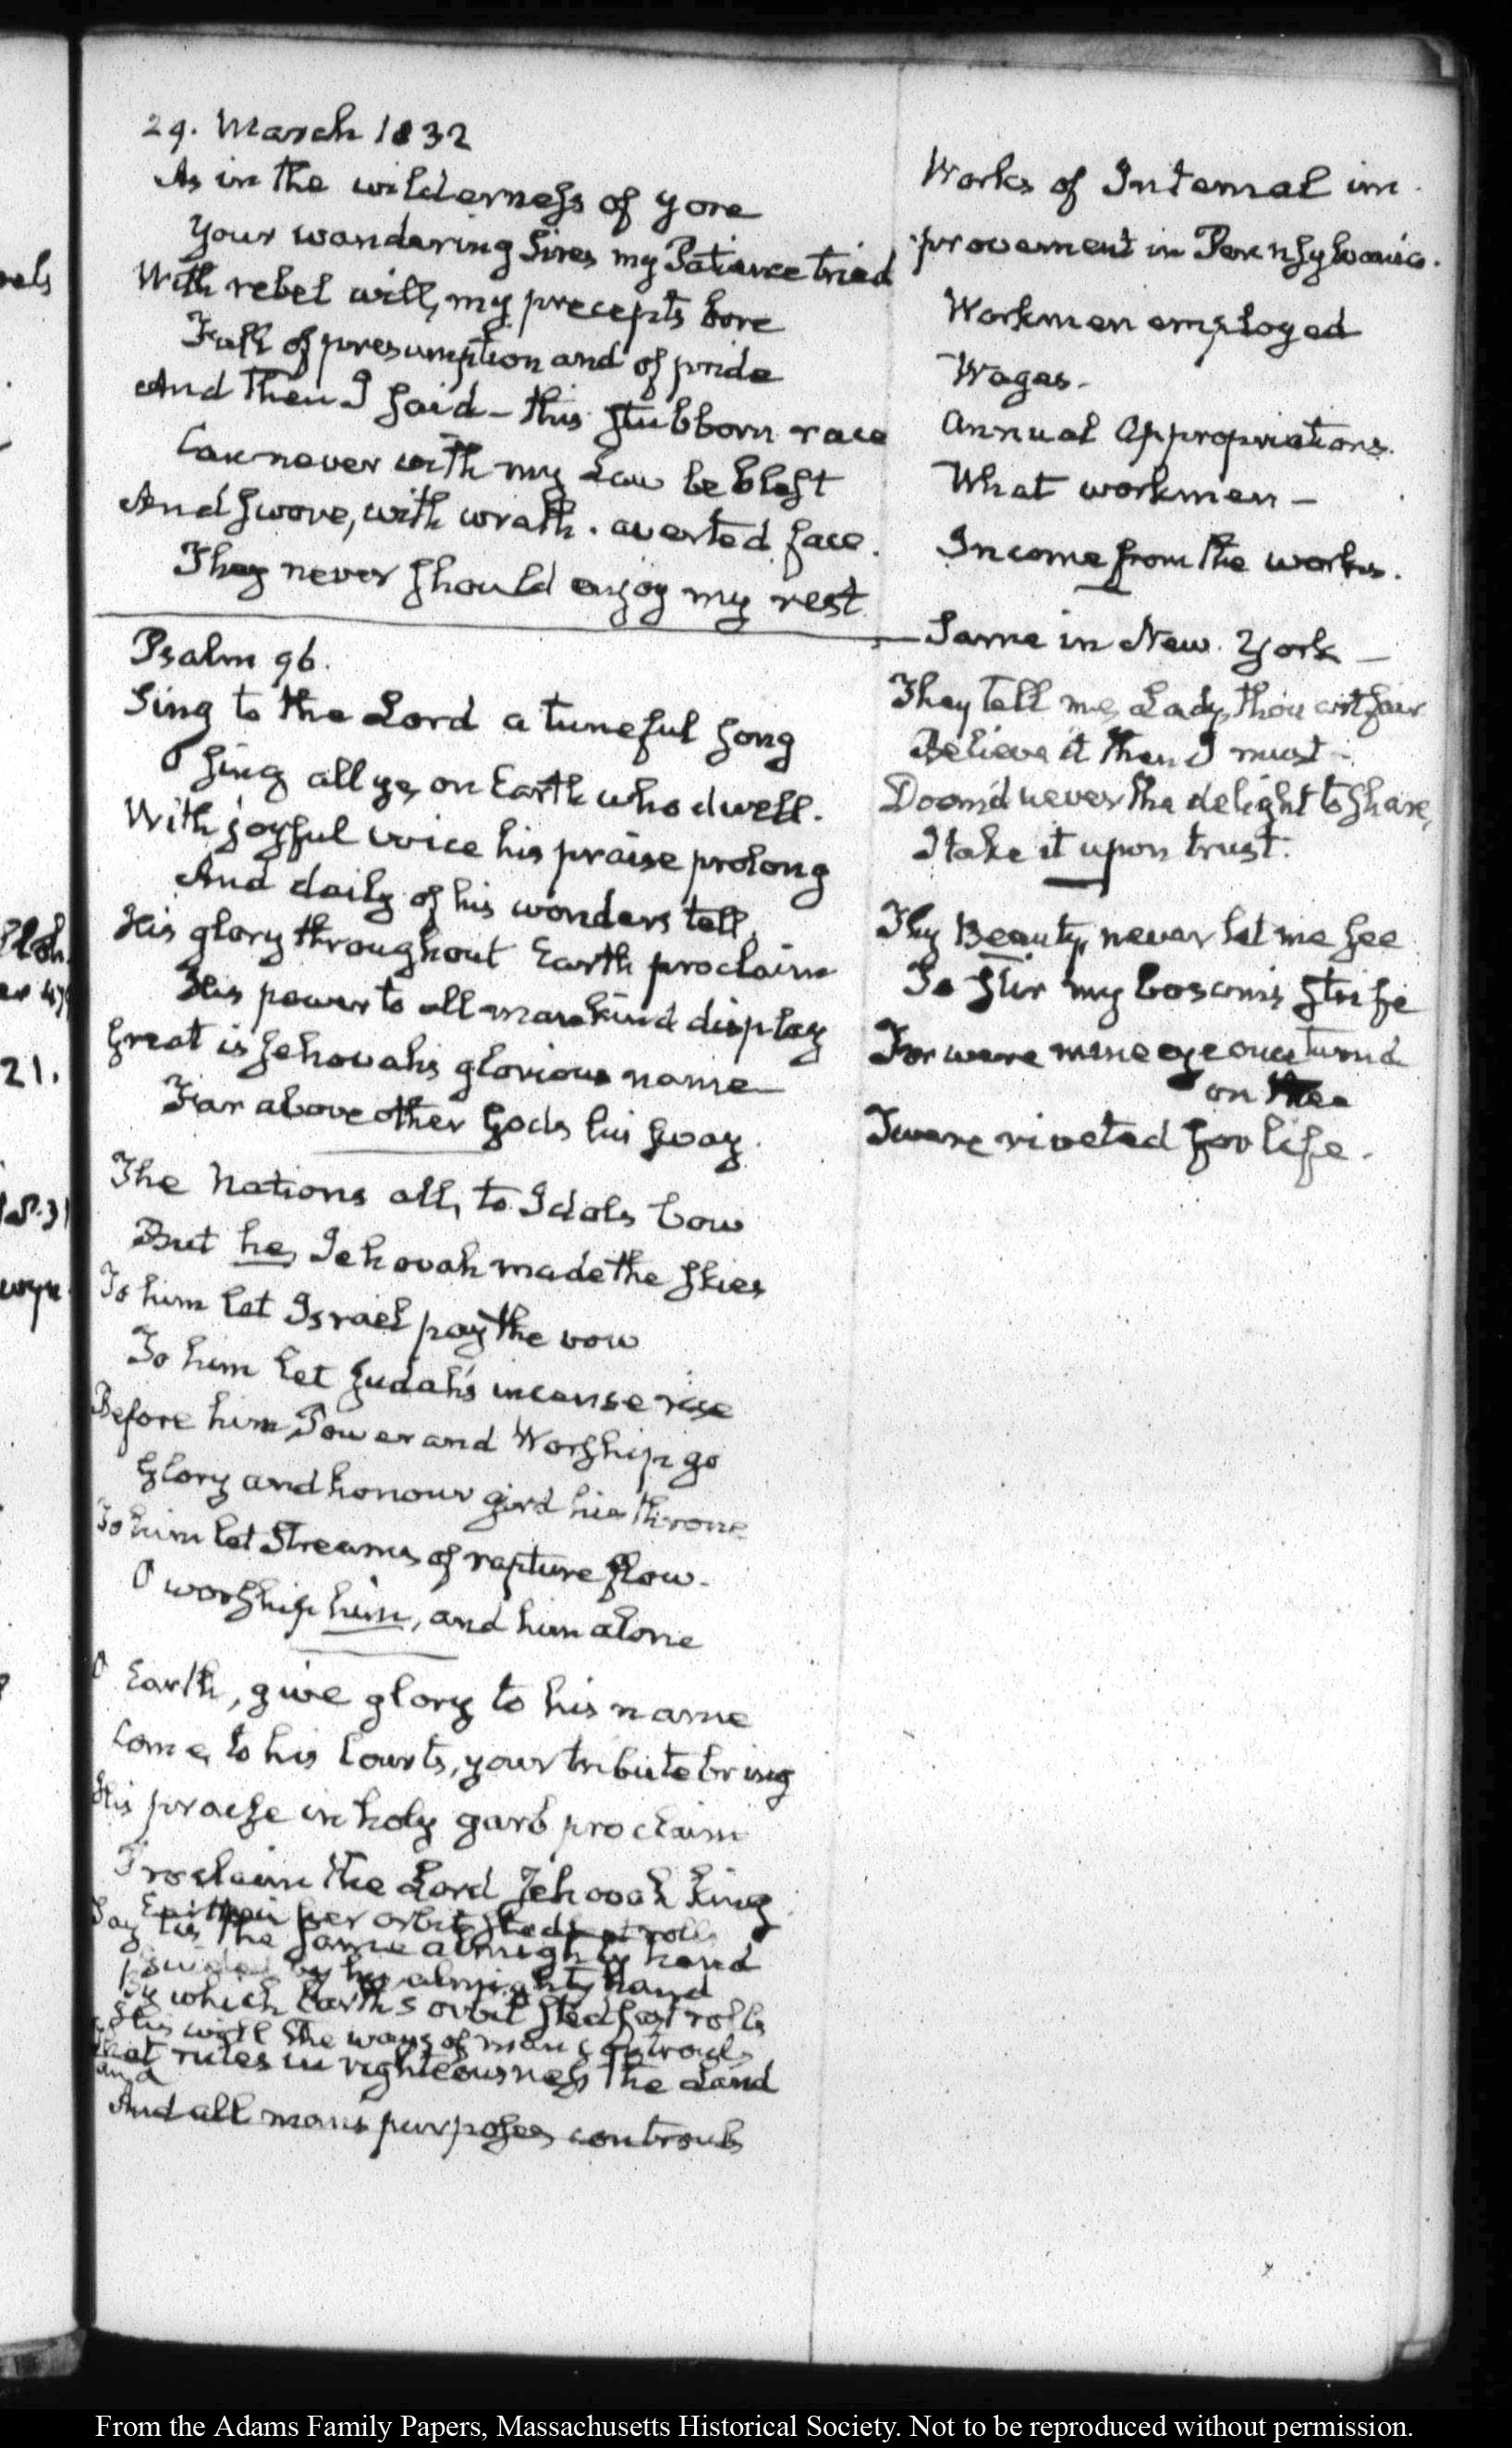 29. March 1832
As in the wilderness of yore
Your wandering Sires my Patience tried
With rebel will, my precepts bore
Full of presumption and of pride
And then I said - this stubborn race
Can never with my Law be blest
And swore, with wrath. averted face.
They never should enjoy my rest
Psalm 96.
Sing to the Lord a tuneful song
O sing all ye, on Earth who dwell.
With joyful voice his praise prolong
And daily of his wonders tell.
His glory throughout Earth proclaim
His power to all mankind display
Great is Jehovah's glorious name
Far above other Gods his sway.
The Nations all, to Idols bow
But he, Jehovah made the skies
To him let Israel pay the vow
To him let Judah's incense rise
Before him, Power and Worship go
Glory and honour gird his throne
To him let Streams of rapture flow.
O worship him, and him alone
O Earth, give glory to his name
Come, to his Courts, your tribute bring
His praise in holy garb proclaim
Proclaim the Lord Jehovah King
her orbit stedfast rolls
Say tis the same almighty hand
Guided by his almighty hand
By which Earth's orbit stedfast rolls
His will the ways of man controuls
That rules in righteousness the Land
and
And all mans purposes controuls
Works of Internal im
provement in Pennsylvania.
Workmen employed
Wages -
Annual Appropriations.
What workmen -
Income from the works.
Same in New York -
They tell me, Lady, thou art fair
Believe it then I must -
Doom'd never the delight to share,
I take it upon trust.
Thy Beauty, never let me see
To stir my bosom's strife
For were mine eye once turn'd
on thee
Twere riveted for life.
ves
21.
From the Adams Family Papers, Massachusetts Historical Society. Not to be reproduced without permission.